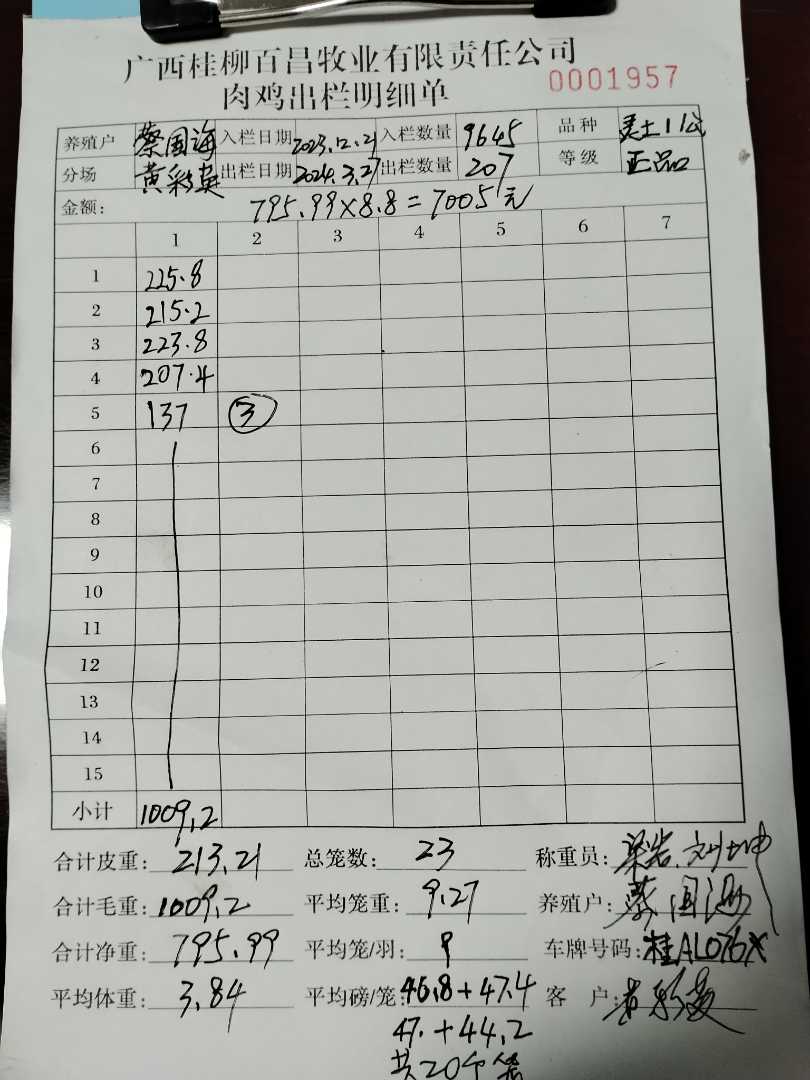 广西桂柳百昌牧业有限责任公司
肉鸡出栏明细单 0001957
养殖户 蔡国海 入栏日期 2023.12.21 入栏数量 9645 品种 土11公
分场 黄彩英 出栏日期 2024.3.27 出栏数量 207 等级 正品
金额: 795.99×8.8=7005元
1 2 3 4 5 6 7
1 225.8
2 215.2
3 223.8
4 207.4
5 137 ③
6
7
8
9
10
11
12
13
14
15
小计 1009.2
合计皮重: 213.21 总笼数: 23 称重员:
合计毛重: 1009.2 平均笼重: 9.27 养殖户: 蔡国海
合计净重: 795.99 平均笼/羽: 9 车牌号码: 桂AL076X
平均体重: 3.84 平均磅/笼: 46.8+47.4 客户: 黄彩英
47.+44.2
共20个笼